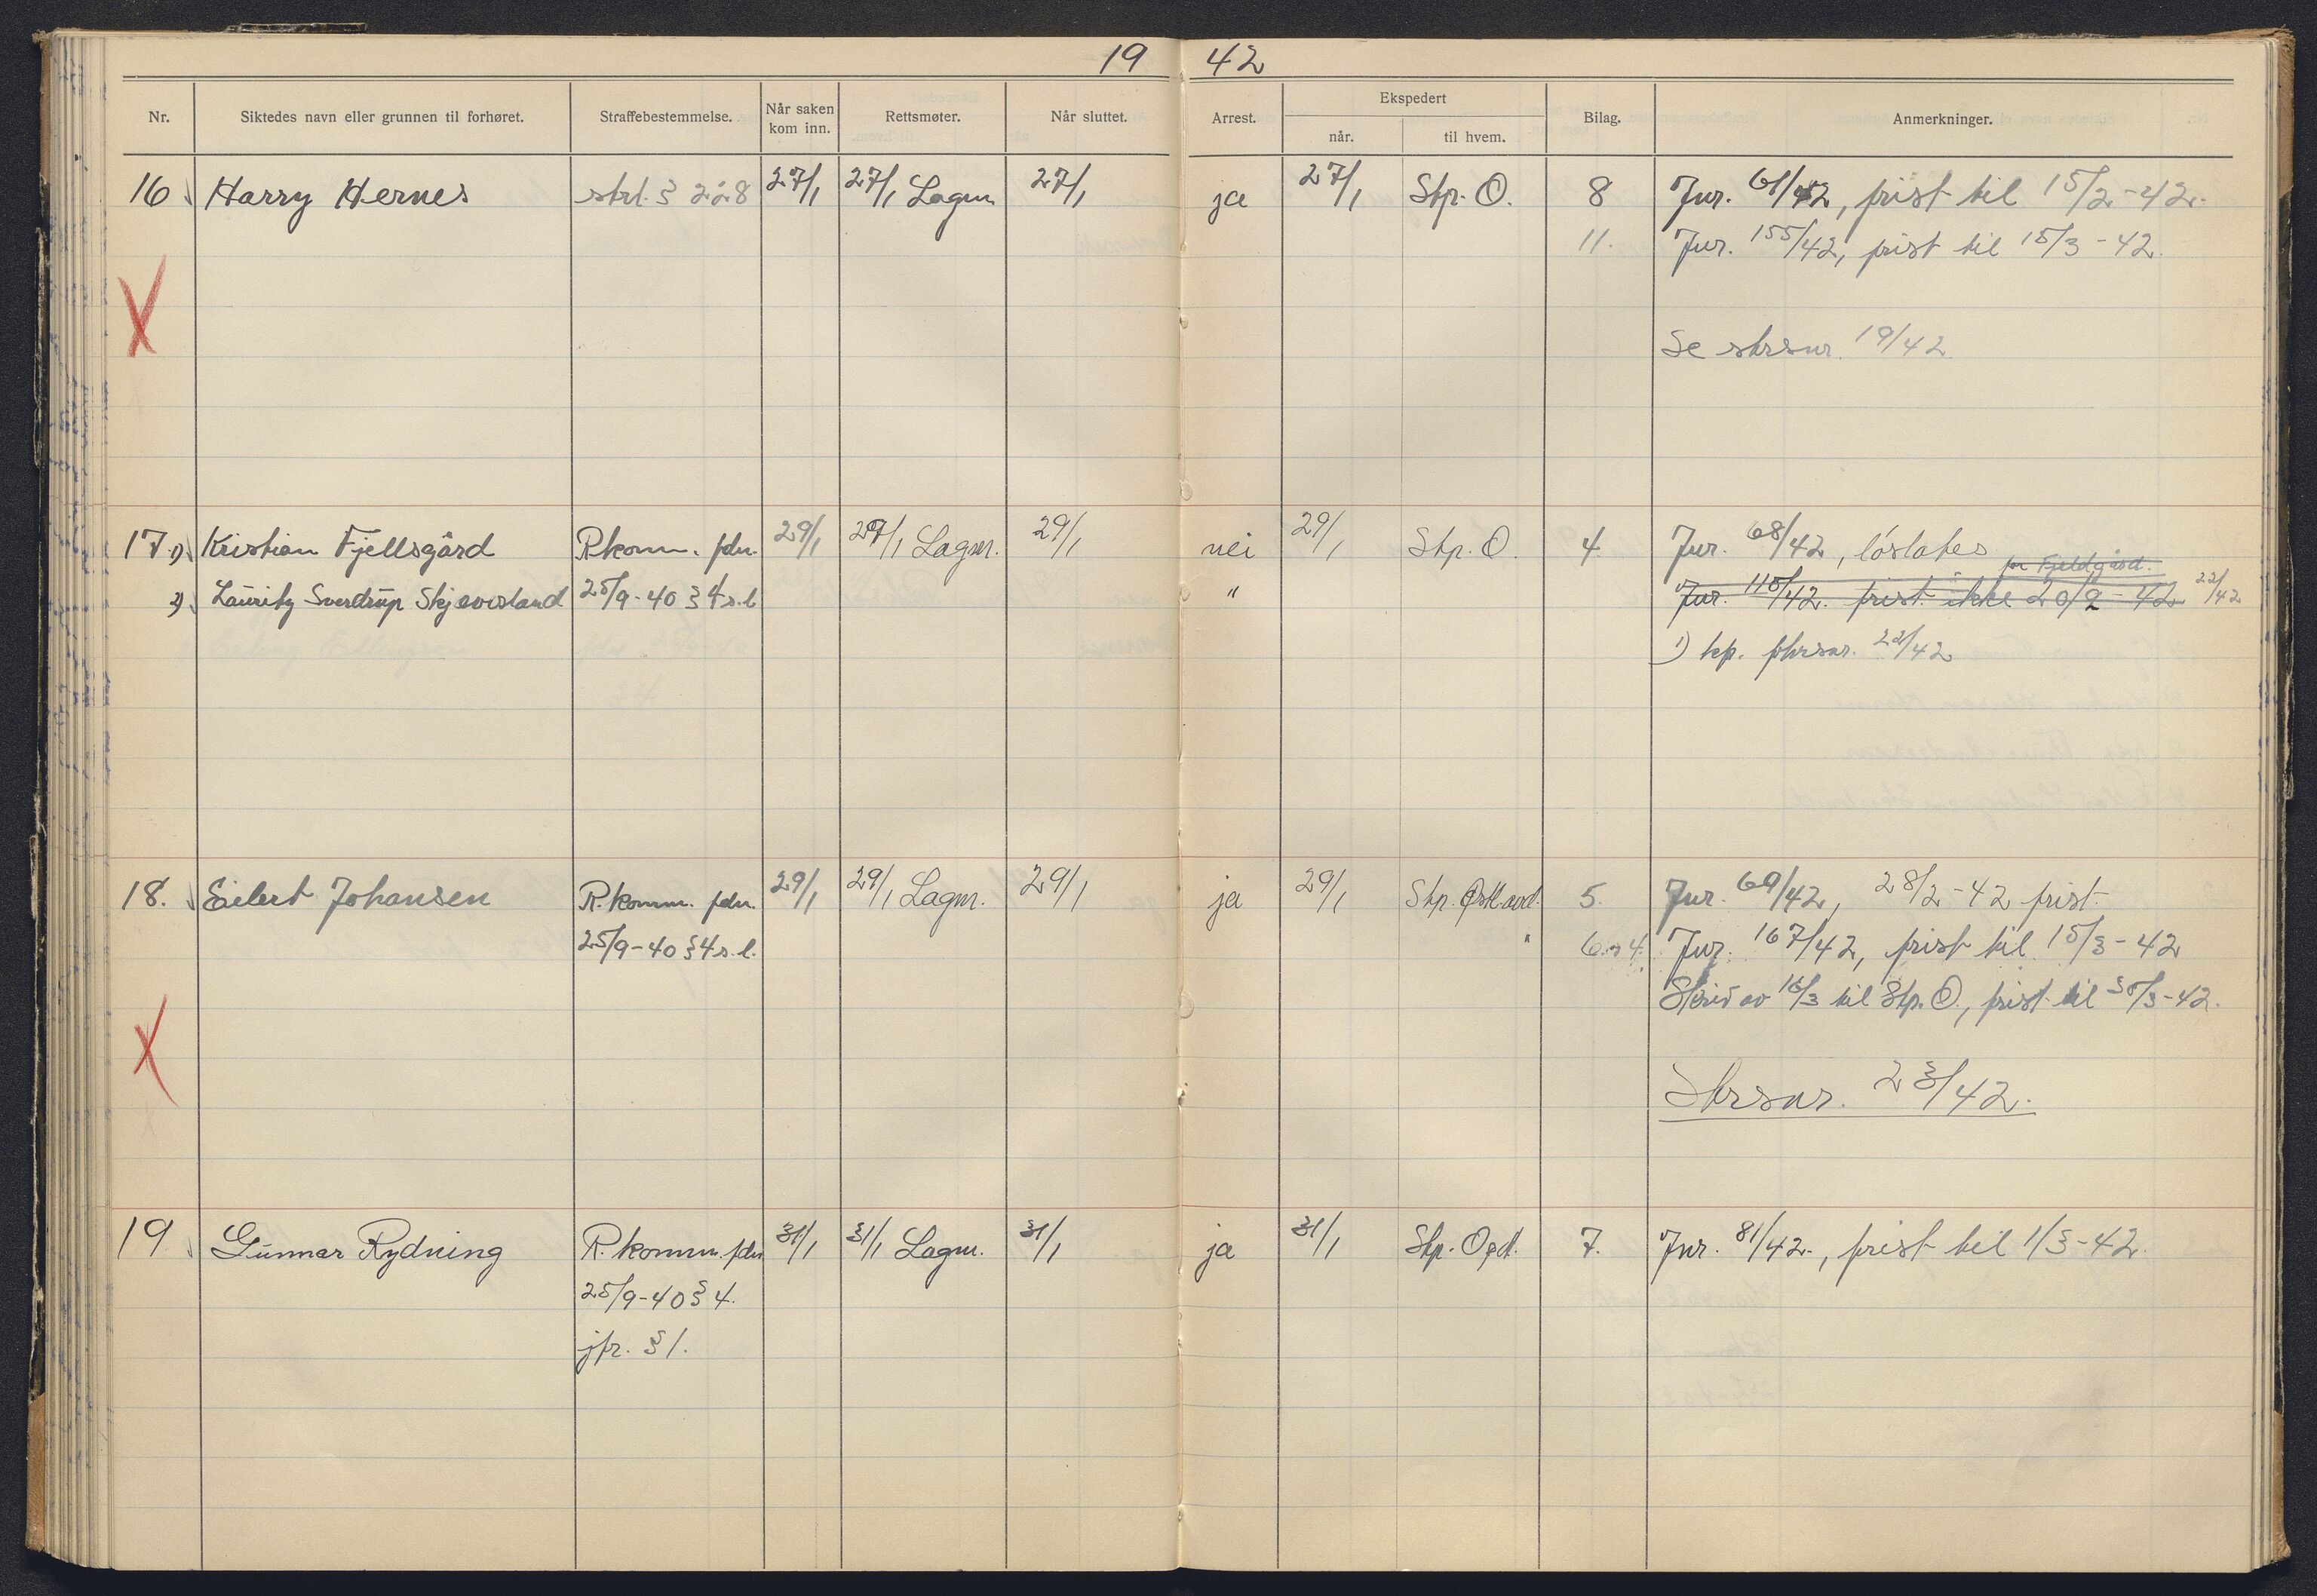 19 42
Nr. Siktedes navn eller grunnen til forhøret. Straffebestemmelse. Når saken kom inn. Rettsmøter. Når sluttet. Arrest. Ekspedert når. til hvem. Bilag. Anmerkninger.
16 Harry Hernes strl. § 228 27/1 27/1 Lagm 27/1 ja 27/1 Stp. O. 8 Jnr. 61/42, frist til 15/2-42.
11. Jnr. 155/42, frist til 15/3-42.
Se strsnr. 19/42
17 1) Kristian Fjellsgård Rkomm. fdn. 29/1 29/1 Lagm. 29/1 nei 29/1 Stp. O. 4. Jnr. 68/42, løslates
for Fjeldgård.
2) Lauritz Sverdrup Skjevesland 25/9-40 § 4 s.l. " Jnr. 115/42. frist ikke 20/2-42 22/42
1) kp. 22/42
18. Eilert Johansen R.komm. fdn. 29/1 29/1 Lagm. 29/1 ja 29/1 Stp. Østl. avd. 5. Jnr. 69/42, 28/2-42 frist.
25/9-40 § 4 s.l. " Jnr. 167/42, frist til 15/3-42
Skriv av 16/3 til Stp. O., frist til 30/3-42.
Strsnr. 23/42.
19 Gunnar Rydning R.komm. fdn 31/1 31/1 Lagm. 31/1 ja 31/1 Stp. 7. Jnr. 81/42., frist til 1/3-42.
25/9-40 § 4.
jfr. § 1.